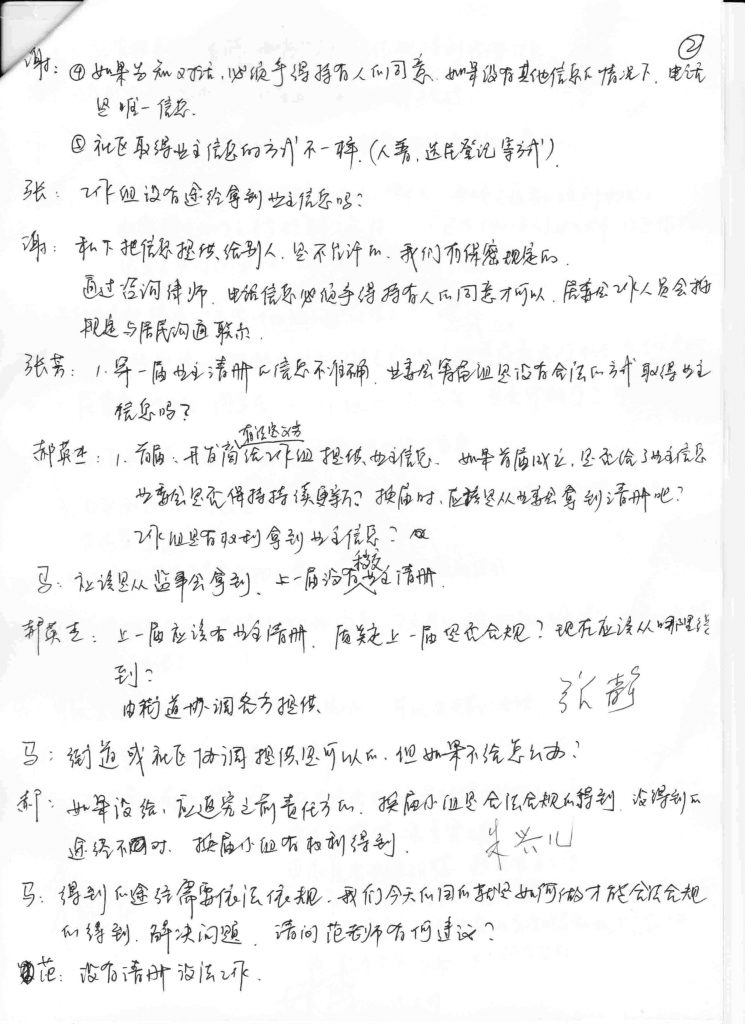 ②
谢：④ 如果告知对话，必须争得持有人的同意。如果没有其他信息的情况下，电话
是唯一信息。
⑤ 社区取得业主信息的方式不一样。（人普，选民登记等方式）
张：工作组没有途径拿到业主信息吗？
谢：私下把信息提供给别人，是不允许的，我们有保密规定的。
通过咨询律师，电话信息必须争得持有人的同意才可以，居委会工作人员会按
规定与居民沟通联系。
张芳：1. 第一届业主清册的信息不准确，业委会筹备组是没有合法的方式取得业主
信息吗？
有法定义务
郝英杰：1. 首届，开发商给工作组提供业主信息。如果首届成立，是否给了业主信息
业委会是否保持持续更新？换届时，应该是从业委会拿到清册吧？
工作组是有权利拿到业主信息？
移交
马：应该是从监事会拿到，上一届没有业主清册。
郝英杰：上一届应该有业主清册，质疑上一届是否合规？现在应该从哪里得
到？
由街道协调各方提供
张静
马：街道或社区协调提供是可以的，但如果不给怎么办？
郝：如果没给，应追究之前责任方的，换届小组是合法合规的得到，没得到的
途径不对，换届小组有权利得到。
朱兴儿
马：得到的途径需要依法依规，我们今天的目的就是如何做才能合法合规
的得到，解决问题，请问范老师有何建议？
范：没有清册没法工作。